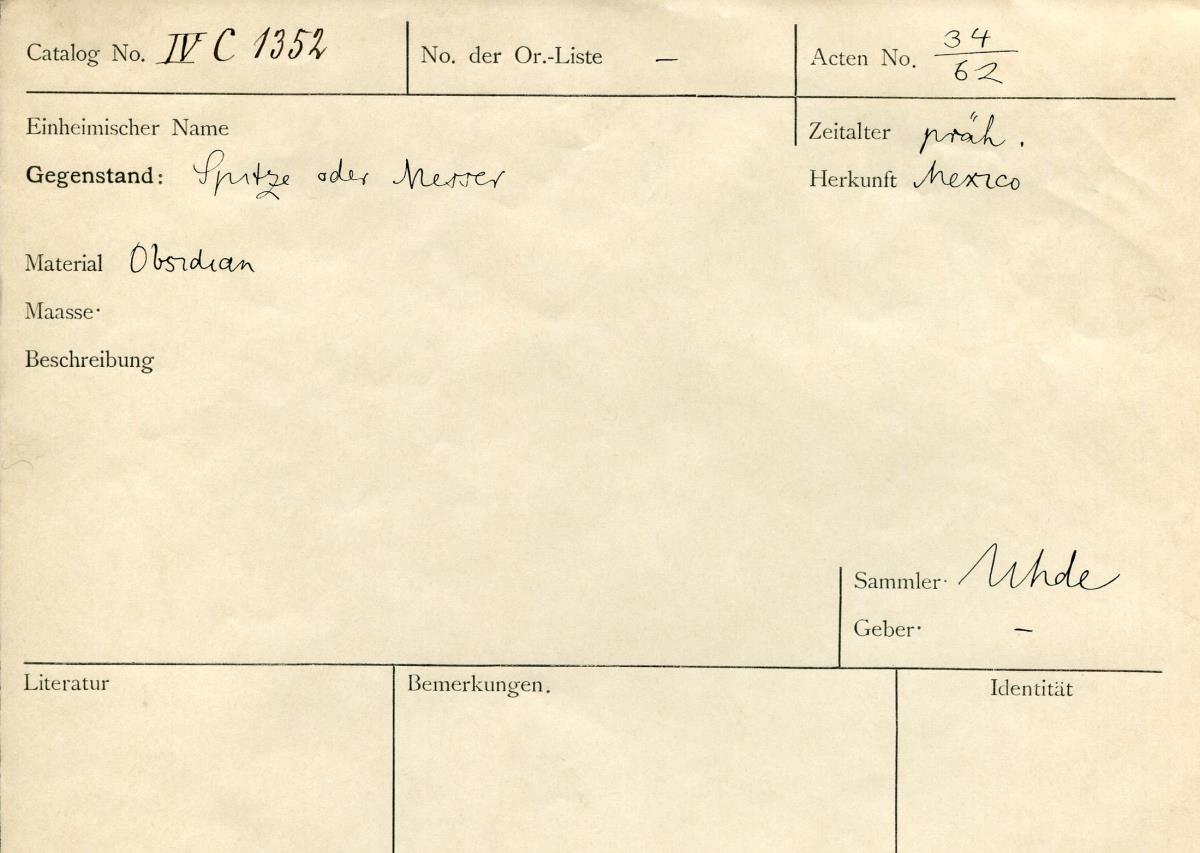 Catalog No. IV C 1352 No. der Or.-Liste — Acten No. 34/62
Einheimischer Name Zeitalter präh.
Gegenstand: Spitze oder Messer Herkunft Mexico
Material Obsidian
Maasse·
Beschreibung
Sammler· Uhde
Geber· —
Literatur Bemerkungen. Identität